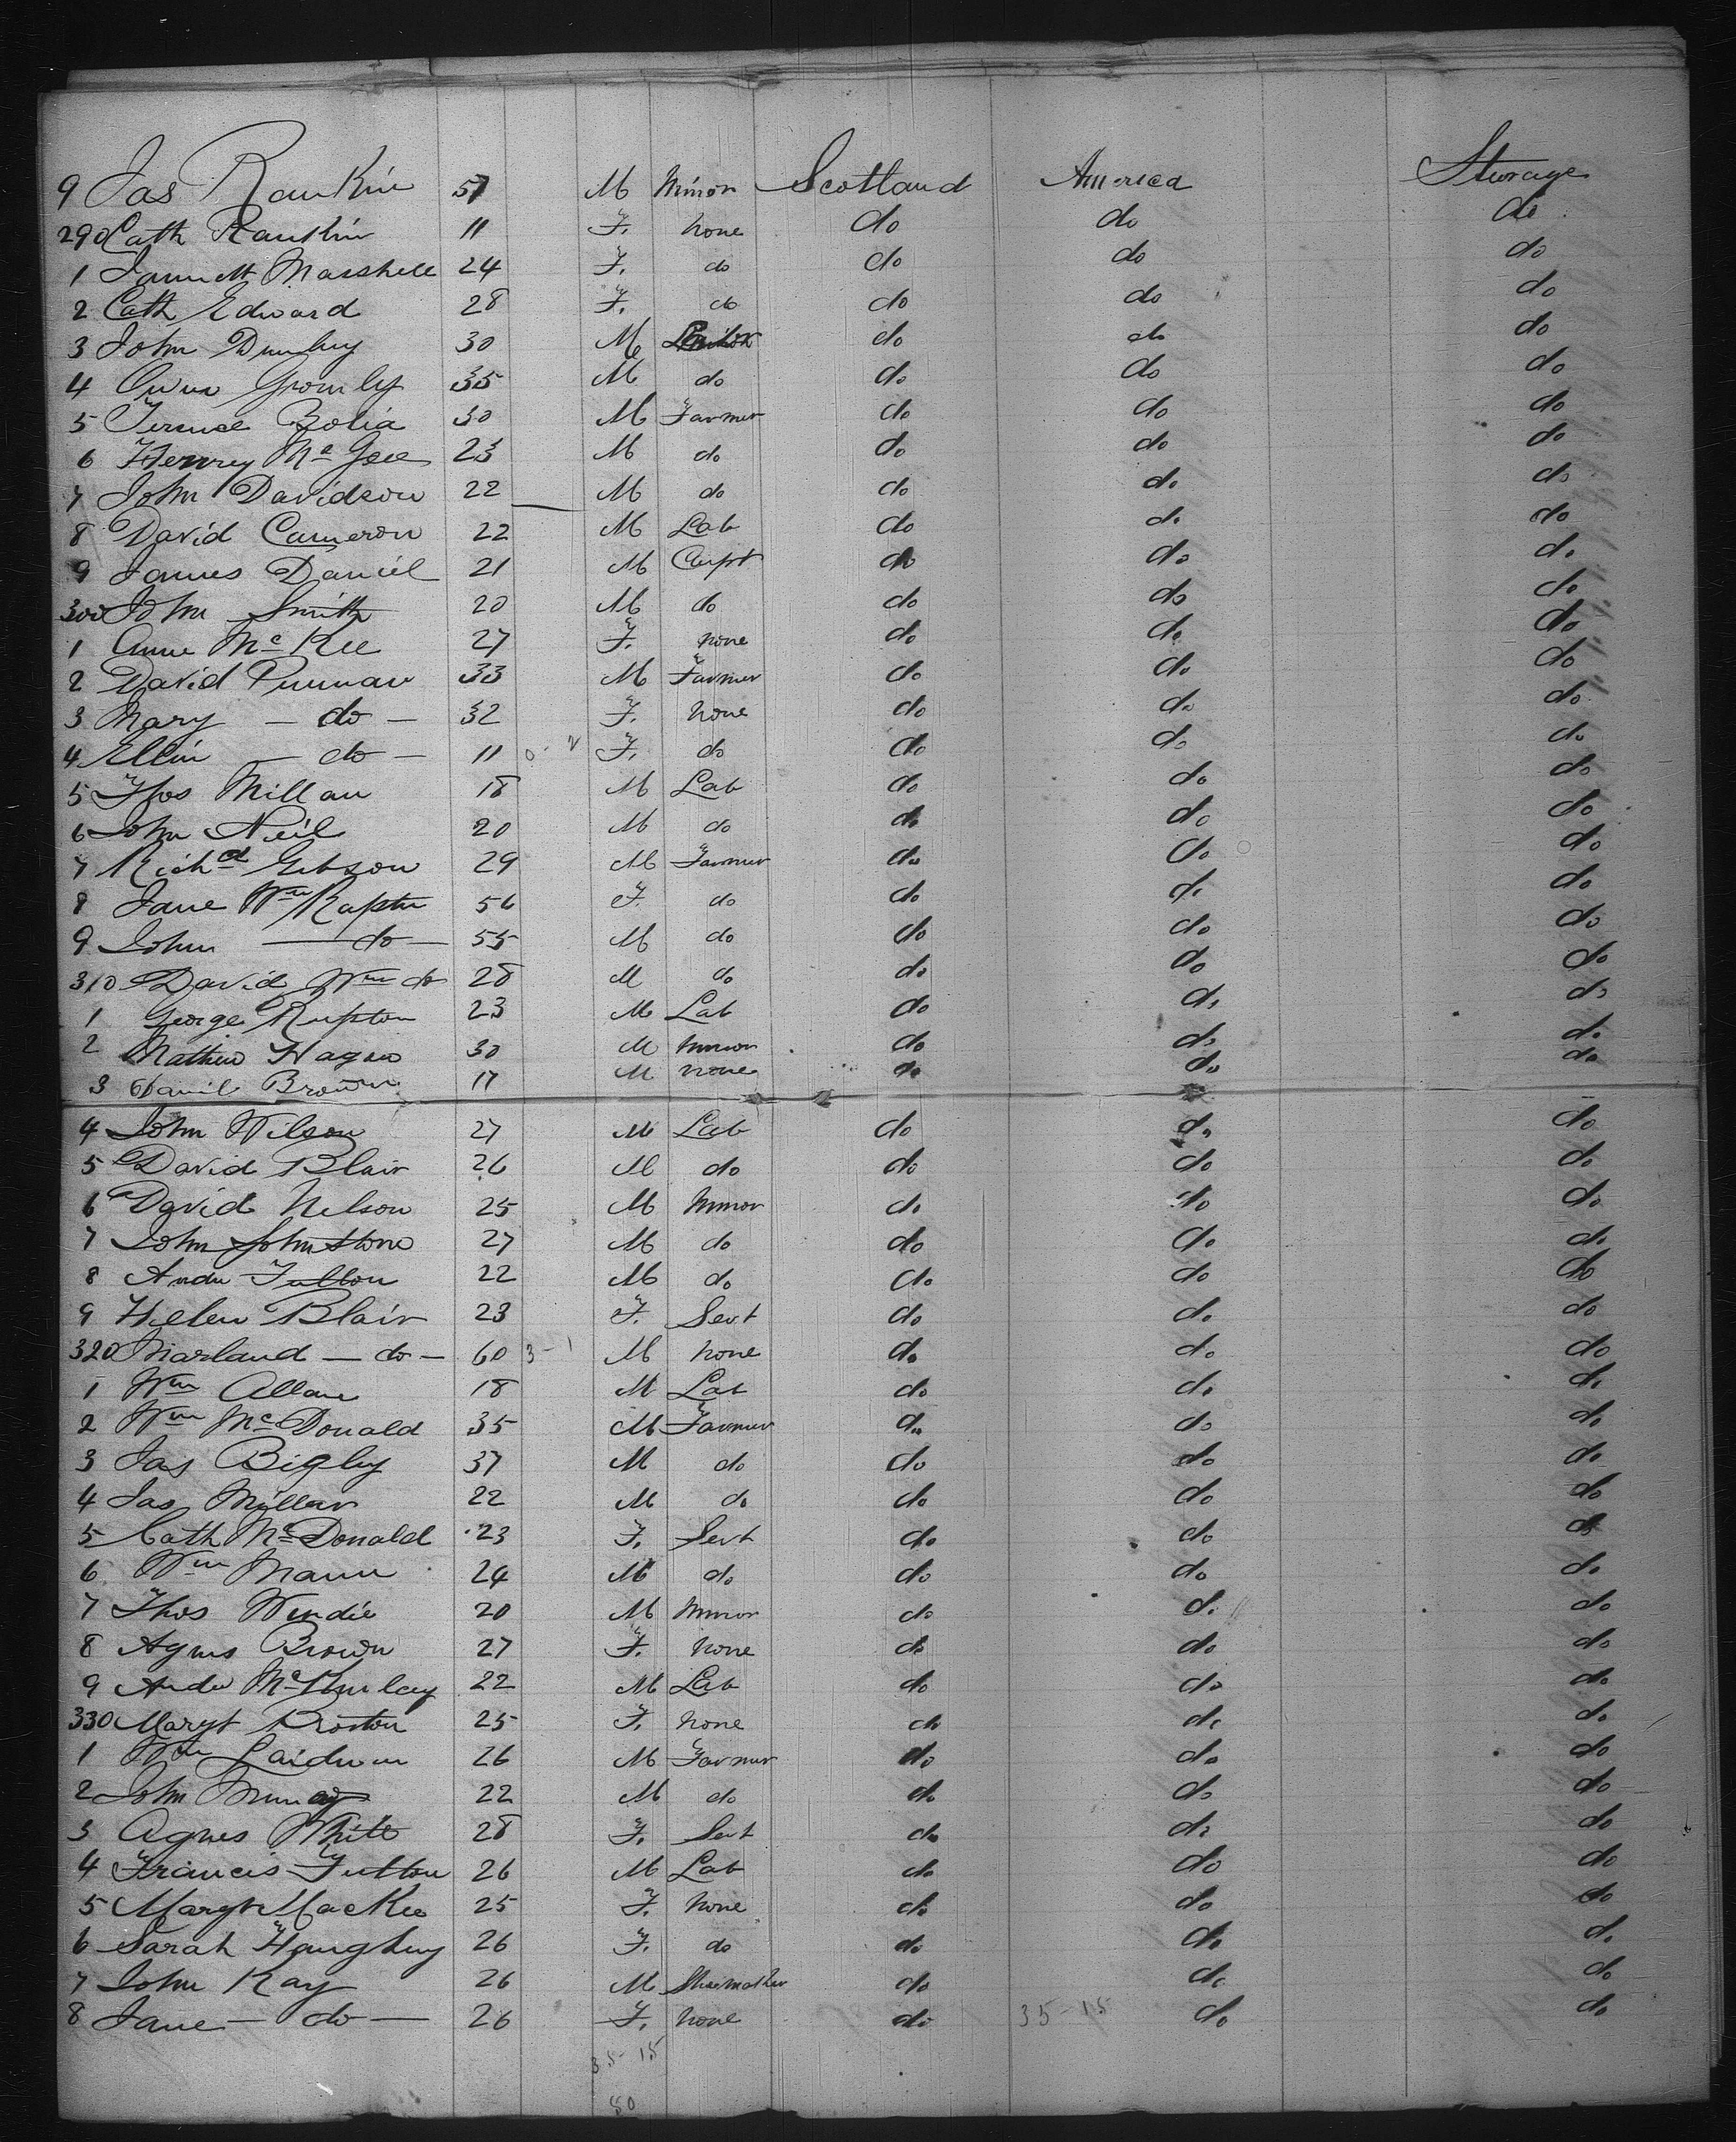 9 Jas Rankin 57 M Minor Scotland America Sturage
290 Cath Rankin 11 F. none do do do
1 Jannett Marshell 24 F. do do do do
2 Cath Edward 28 F. do do do do
3 John 30 M do do do
4 Owen Gromly 35 M do do do do
5 Terence Bolia 30 M Farmer do do do
6 Henry Mc Gee 23 M do do do do
7 John Davidson 22 M do do do do
8 David Cameron 22 M Lab do do do
9 James Daniel 21 M Carpt do do do
300 John Smith 20 M do do do do
1 Anne Mc Kee 27 F. none do do do
2 David 33 M Farmer do do do
3 Mary — do — 32 F. none do do do
4 Ellin — do — 11 F. do do do do
5 Thos Millan 18 M Lab do do do
6 John Neil 20 M do do do do
7 Richd Gibson 29 M Farmer do do do
8 Jane Wm 56 F. do do do do
9 John — do — 55 M do do do do
310 David Wm do 28 M do do do do
1 George Rupton 23 M Lab do do do
2 Mathew Hagen 30 M Minor do do do
3 Daniel Brown 17 M none do do do
4 John Wilson 27 M Lab do do do
5 David Blair 26 M do do do do
6 David Nelson 25 M Minor do do do
7 John Johnstone 27 M do do do do
8 Andw Fulton 22 M do do do do
9 Helen Blair 23 F. Sevt do do do
320 Marland — do — 60 3 - 1 M none do do do
1 Wm Allan 18 M Lab do do do
2 Wm McDonald 35 M Farmer do do do
3 Jas Bigley 37 M do do do do
4 Jas Millar 22 M do do do do
5 Cath McDonald 23 F. Sevt do do do
6 Wm Mann 24 M do do do do
7 Thos Windie 20 M Minor do do do
8 Agnes Brown 27 F. none do do do
9 Andw McKinlay 22 M Lab do do do
330 Margt Broston 25 F. none do do do
1 Wm 26 M Farmer do do do
2 John 22 M do do do do
3 Agnes White 28 F. Sevt do do do
4 Francis Fulton 26 M Lab do do do
5 Margt MacKee 25 F. none do do do
6 Sarah Haughey 26 F. do do do do
7 John Kay 26 M Shoemaker do do do
8 Jane — do — 26 F. none do 35-15 do do
35-15
50